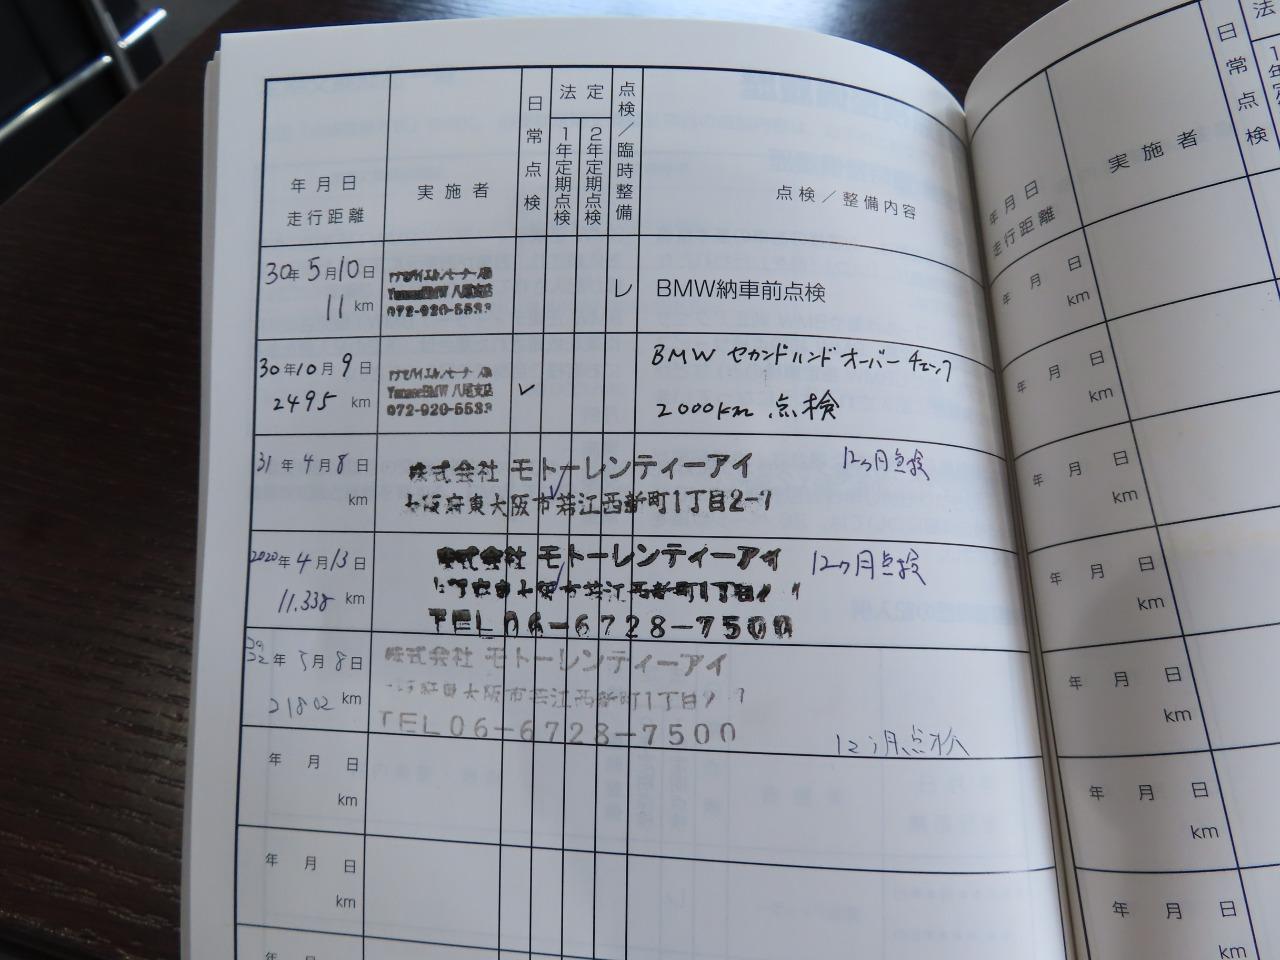 年月日
走行距離
実施者
日常点検
法定
1年定期点検
2年定期点検
点検／臨時整備
点検／整備内容
30年5月10日
11 km
YanaseBMW 八尾支店
072-920-5533
レ
BMW納車前点検
30年10月9日
2495 km
YanaseBMW 八尾支店
072-920-5533
BMW セカンドハンドオーバーチェック
2000km 点検
31年4月8日
km
株式会社 モトーレンティーアイ
大阪府東大阪市若江西新町1丁目2-1
12ヶ月点検
2020年4月13日
11.338 km
株式会社 モトーレンティーアイ
TEL06-6728-7500
12ヶ月点検
年5月8日
21802 km
株式会社 モトーレンティーアイ
東大阪市若江西新町1丁目
TEL06-6728-7500
12ヶ月点検
年 月 日
km
年 月 日
km
年
年月日
走行距離
実施者
日常点検
法
年 月 日
km
年 月 日
km
年 月 日
km
年 月 日
km
年 月 日
km
年 月 日
km
年 月 日
km